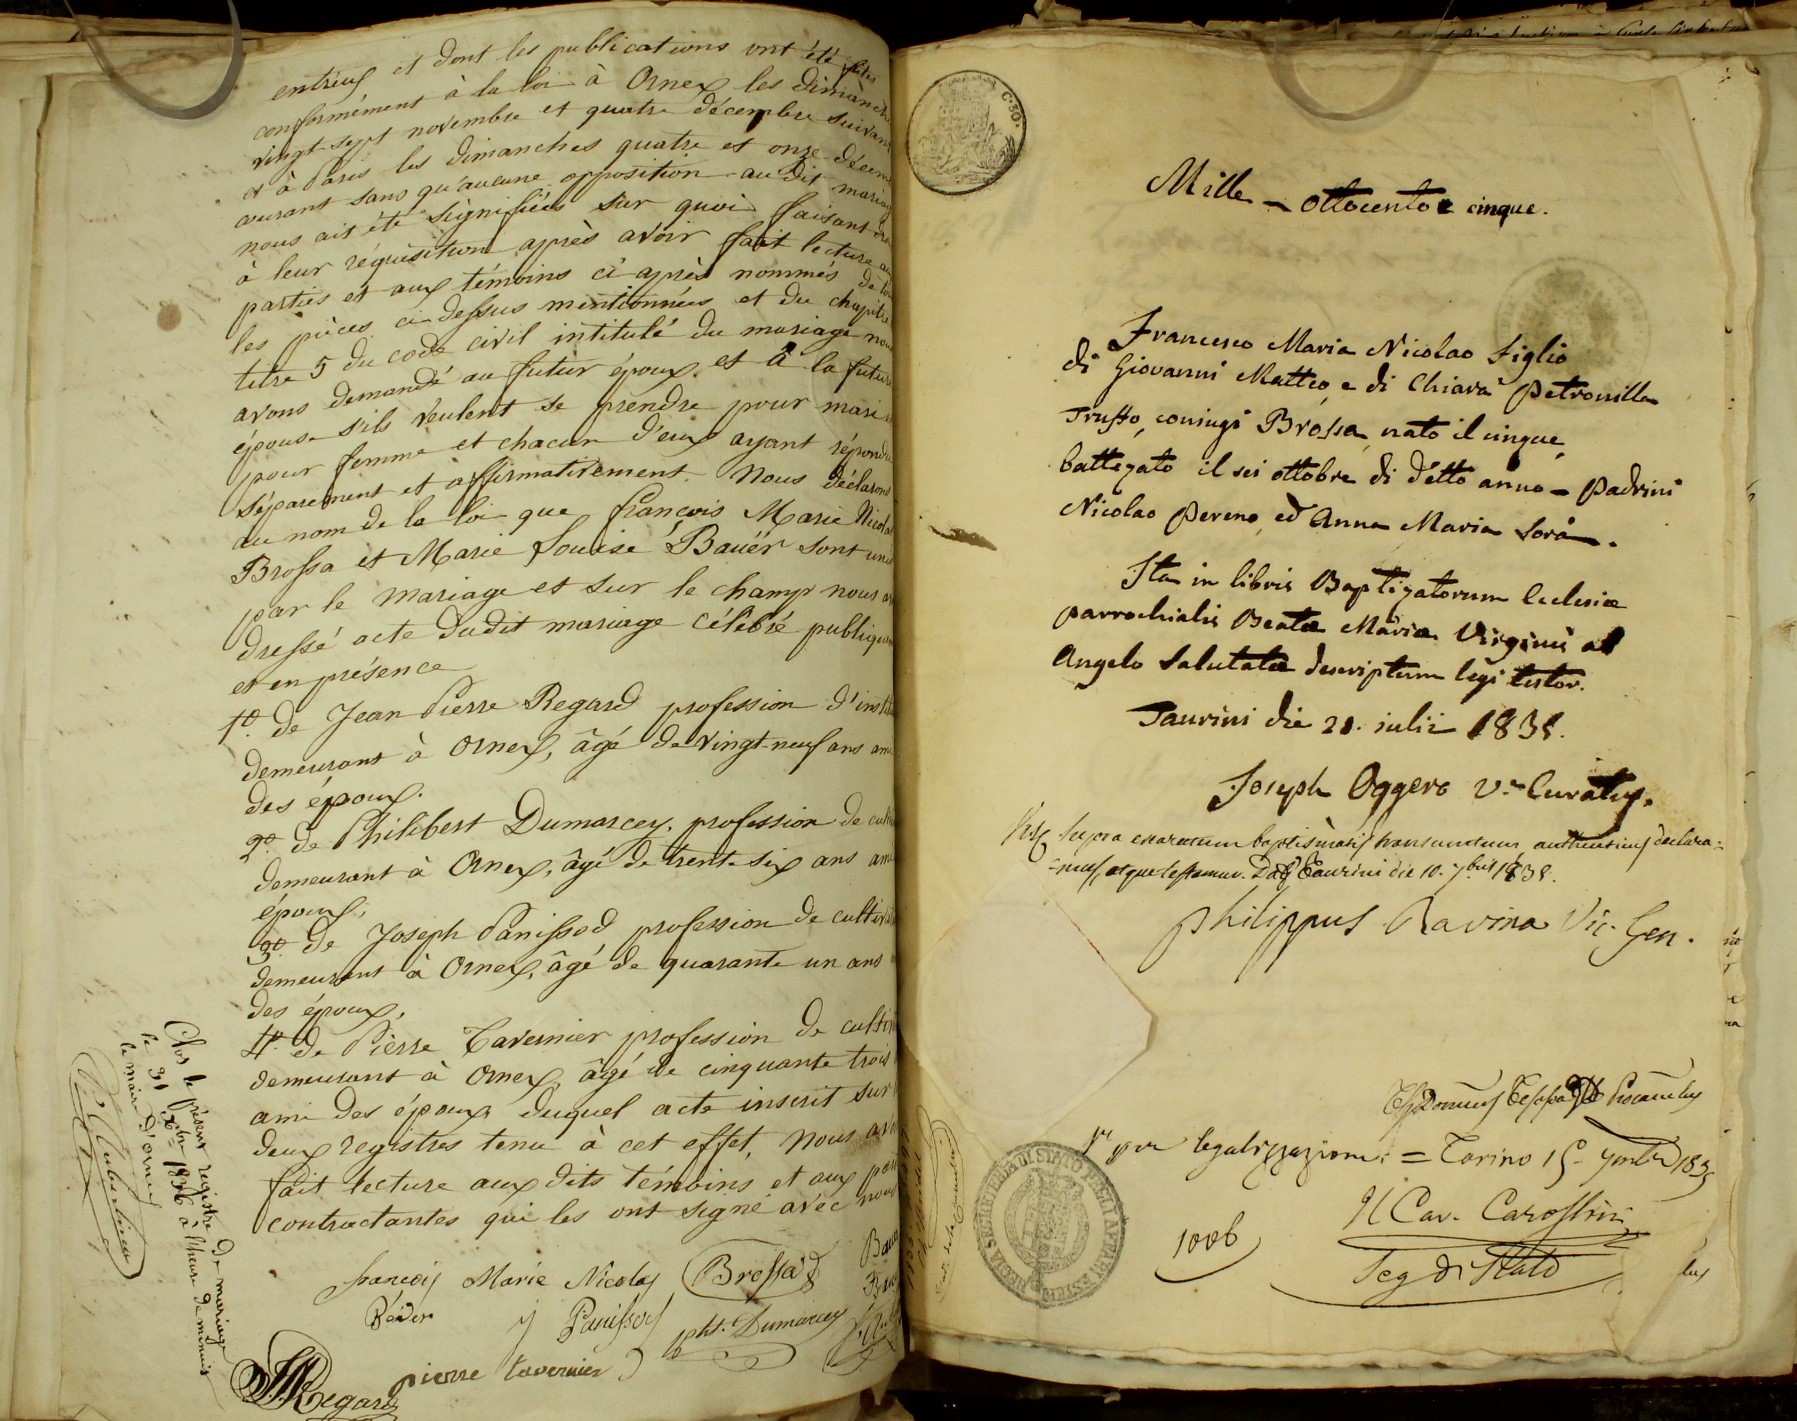 entreux et dont les publications ont été faites
conformément à la loi à Ornex les dimanches
vingt-sept novembre et quatre décembre suivant
et à Paris les dimanches quatre et onze décem
courant sans qu'aucune opposition au dit mariage
nous ait été signifiée sur quoi faisant droit
à leur réquisition après avoir fait lecture aux
parties et aux témoins ci après nommés de toutes
les pièces ci dessus mentionnées et du chapitre
titre 5 du code civil intitulé du mariage nous
avons demandé au futur époux et à la future
épouse s'ils veulent se prendre pour mari
pour femme et chacun d'eux ayant répondu
séparement et affirmativement. Nous déclarons
au nom de la loi que françois Marie Nicolas
Brossa et Marie Louise Bauër sont unis
par le mariage et sur le champ nous
dressé acte dudit mariage célébré publiquem
et en présence
1º. de Jean Pierre Regard profession d'insti
demeurant à Ornex, âgé de vingt-neuf ans ami
des époux.
2º. de Philibert Dumarcey, profession de culti
demeurant à Ornex, âgé de trente six ans ami
époux,
3º. de Joseph Panissod profession de cultiva
demeurant à Ornex, âgé de quarante un ans
des époux,
4º. de Pierre Tavernier profession de cultiv
demeurant à Ornex, âgé de cinquante trois
ami des époux duquel acte inscrit sur
deux registres tenu à cet effet, Nous av
fait lecture aux dits témoins et aux par
contractantes qui les ont signé avec nous
françois Marie Nicolas Brossa
J Panissod Pht. Dumarcey
pierre tavernier
JP Regard
Clos le présent registre de mariage
le 31 Xbre 1836 à l'heure de minuit
le maire d'ornex
C. 30.
Mille ottocento e cinque.
Francesco Maria Nicolao figlio
di Giovanni Matteo e di Chiara Petronilla
Truffo, coniugi Brossa nato il cinque,
battezato il sei ottobre di detto anno - Padrini
Nicolao Pereno, ed Anna Maria Sora.
Ita in libris Baptizatorum Ecclesiæ
parrochialis Beatæ Mariæ Virginis ab
Angelo Salutatæ descriptum legi testor.
Taurini die 21. iulii 1835.
Joseph Oggero V. Curatus.
supra exaratum baptismatis transuntum authenticum declara=
=mus, atque testamur. Dat Taurini die 10. 7bris 1835.
Philippus Ravina Vic. Gen.
per legalizzazione = Torino 15 1835
Il Cav.
Seg di Stato
1006